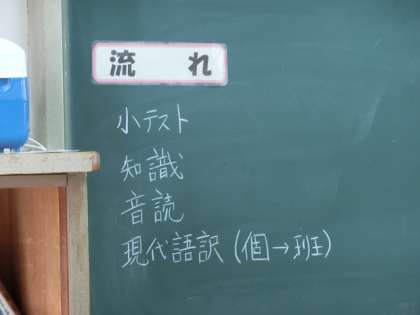 流れ
小テスト
知識
音読
現代語訳（個→班）